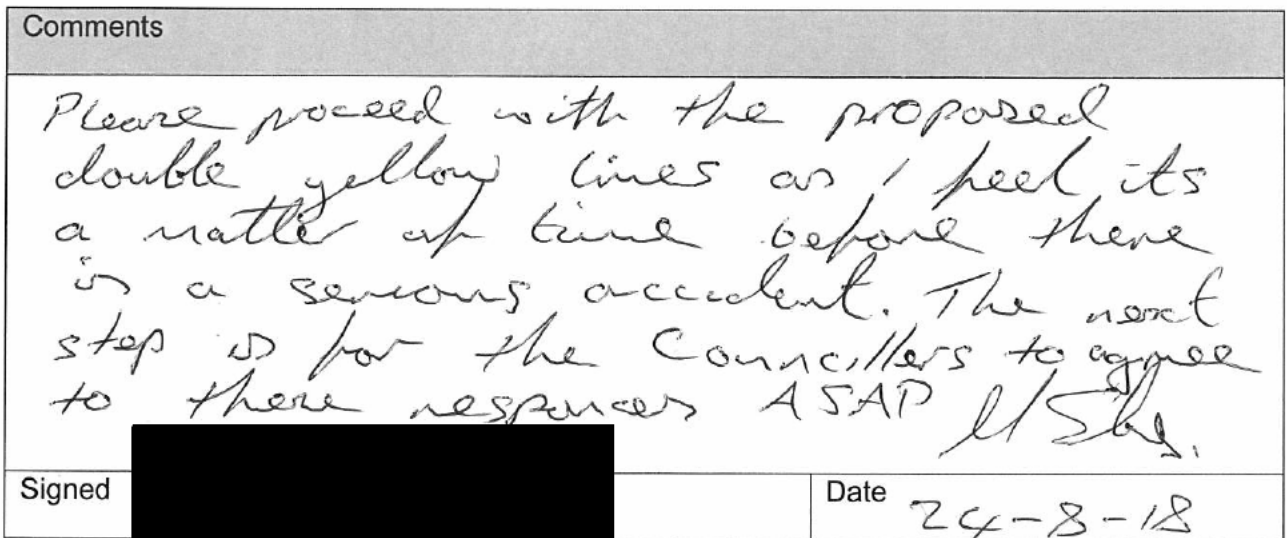 Comments
Please proceed with the proposed
double yellow lines as I feel its
a matter of time before there
is a serious accident. The next
step is for the Councillers to agree
to these responces ASAP
Signed
Date 24-8-18